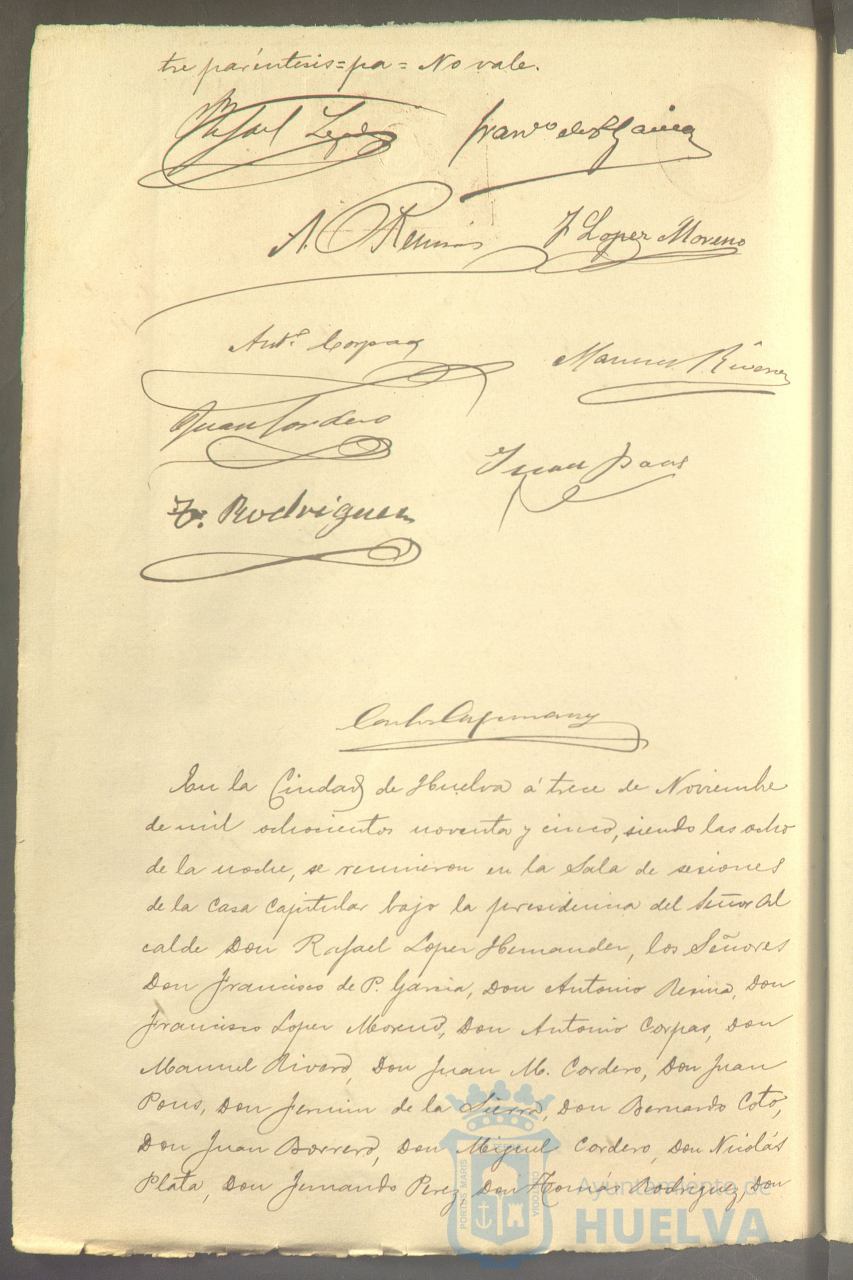 tre paréntesis=pa= No vale.
Rafael Lopez Franco de P. Garcia
A. Resina F Lopez Moreno
Anto. Corpas Manuel Rivero
Juan Cordero
Juan Pons
T. Rodriguez
Carlos
En la Ciudad de Huelva á trece de Noviembre
de mil ochocientos noventa y cinco, siendo las ocho
de la noche, se reunieron en la Sala de sesiones
de la Casa Capitular bajo la presidencia del Señor Al
calde Don Rafael Lopez Hernandez, los Señores
Don Francisco de P. Garcia, Don Antonio Resina, Don
Francisco Lopez Moreno, Don Antonio Corpas, Don
Manuel Rivero, Don Juan M. Cordero, Don Juan
Pons, Don Fermin de la Sierra, Don Bernardo Coto,
Don Juan Borrero, Don Miguel Cordero, Don Nicolás
Plata, Don Fernando Perez, Don Tomás Rodriguez, Don
PORTUS MARIS
CUSTODIA
Ayuntamiento de
HUELVA